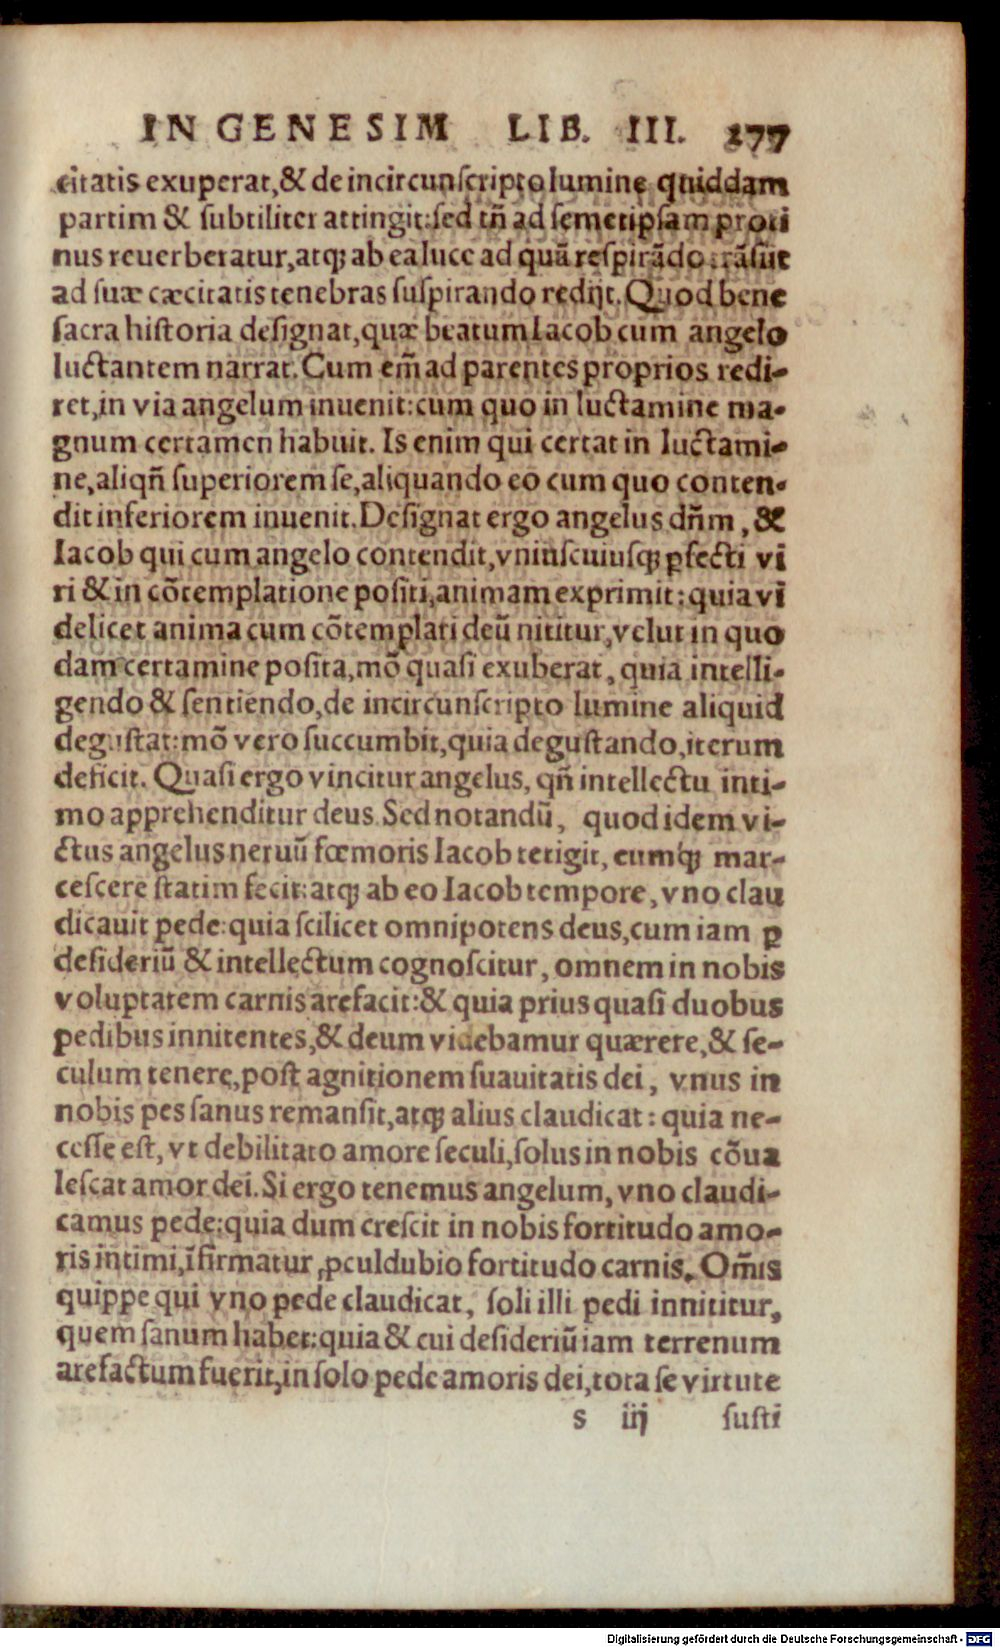 IN GENESIM LIB. III. 277
citatis exuperat,& de incircunscripto lumine quiddam
partim & subtiliter attingit:sed tñ ad semetipsam proti
nus reuerberatur,atq; ab ea luce ad quã respirãdo trãsiit
ad suæ cæcitatis tenebras suspirando redijt. Quod bene
sacra historia designat,quæ beatum Iacob cum angelo
luctantem narrat. Cum em̃ ad parentes proprios redi-
ret,in via angelum inuenit:cum quo in luctamine ma-
gnum certamen habuit. Is enim qui certat in luctami-
ne,aliqñ superiorem se,aliquando eo cum quo conten-
dit inferiorem inuenit. Designat ergo angelus dñm ,&
Iacob qui cum angelo contendit,vniuscuiusq; ꝑfecti vi
ri & in cõtemplatione positi,animam exprimit: quia vi
delicet anima cum cõtemplari deũ nititur,velut in quo
dam certamine posita,mõ quasi exuberat, quia intelli-
gendo & sentiendo,de incircunscripto lumine aliquid
degustat:mõ vero succumbit,quia degustando,iterum
deficit. Quasi ergo vincitur angelus, qñ intellectu inti-
mo apprehenditur deus. Sed notandũ, quod idem vi-
ctus angelus neruũ fœmoris Iacob tetigit, eumq; mar-
cescere statim fecit:atq; ab eo Iacob tempore, vno clau
dicauit pede:quia scilicet omnipotens deus,cum iam ꝑ
desideriũ & intellectum cognoscitur, omnem in nobis
voluptatem carnis arefacit:& quia prius quasi duobus
pedibus innitentes,& deum videbamur quærere,& se-
culum tenere,post agnitionem suauitatis dei, vnus in
nobis pes sanus remansit,atq; alius claudicat: quia ne-
cesse est, vt debilitato amore seculi,solus in nobis cõua
lescat amor dei. Si ergo tenemus angelum, vno claudi-
camus pede:quia dum crescit in nobis fortitudo amo-
ris intimi,ĩfirmatur ꝓculdubio fortitudo carnis. Om̃is
quippe qui vno pede claudicat, soli illi pedi innititur,
quem sanum habet:quia & cui desideriũ iam terrenum
arefactum fuerit,in solo pede amoris dei,tota se virtute
s iij susti
Digitalisierung gefördert durch die Deutsche Forschungsgemeinschaft - DFG